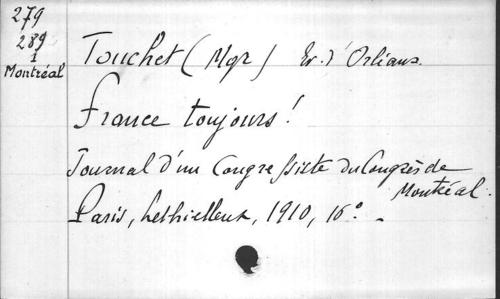 279
289
1
Montréal
Touchet (Mgr) Ev. d'Orléans.
France toujours!
Journal d'un Congressiste du Congrès de
Montréal.
Paris, Lethielleux, 1910, 16°.